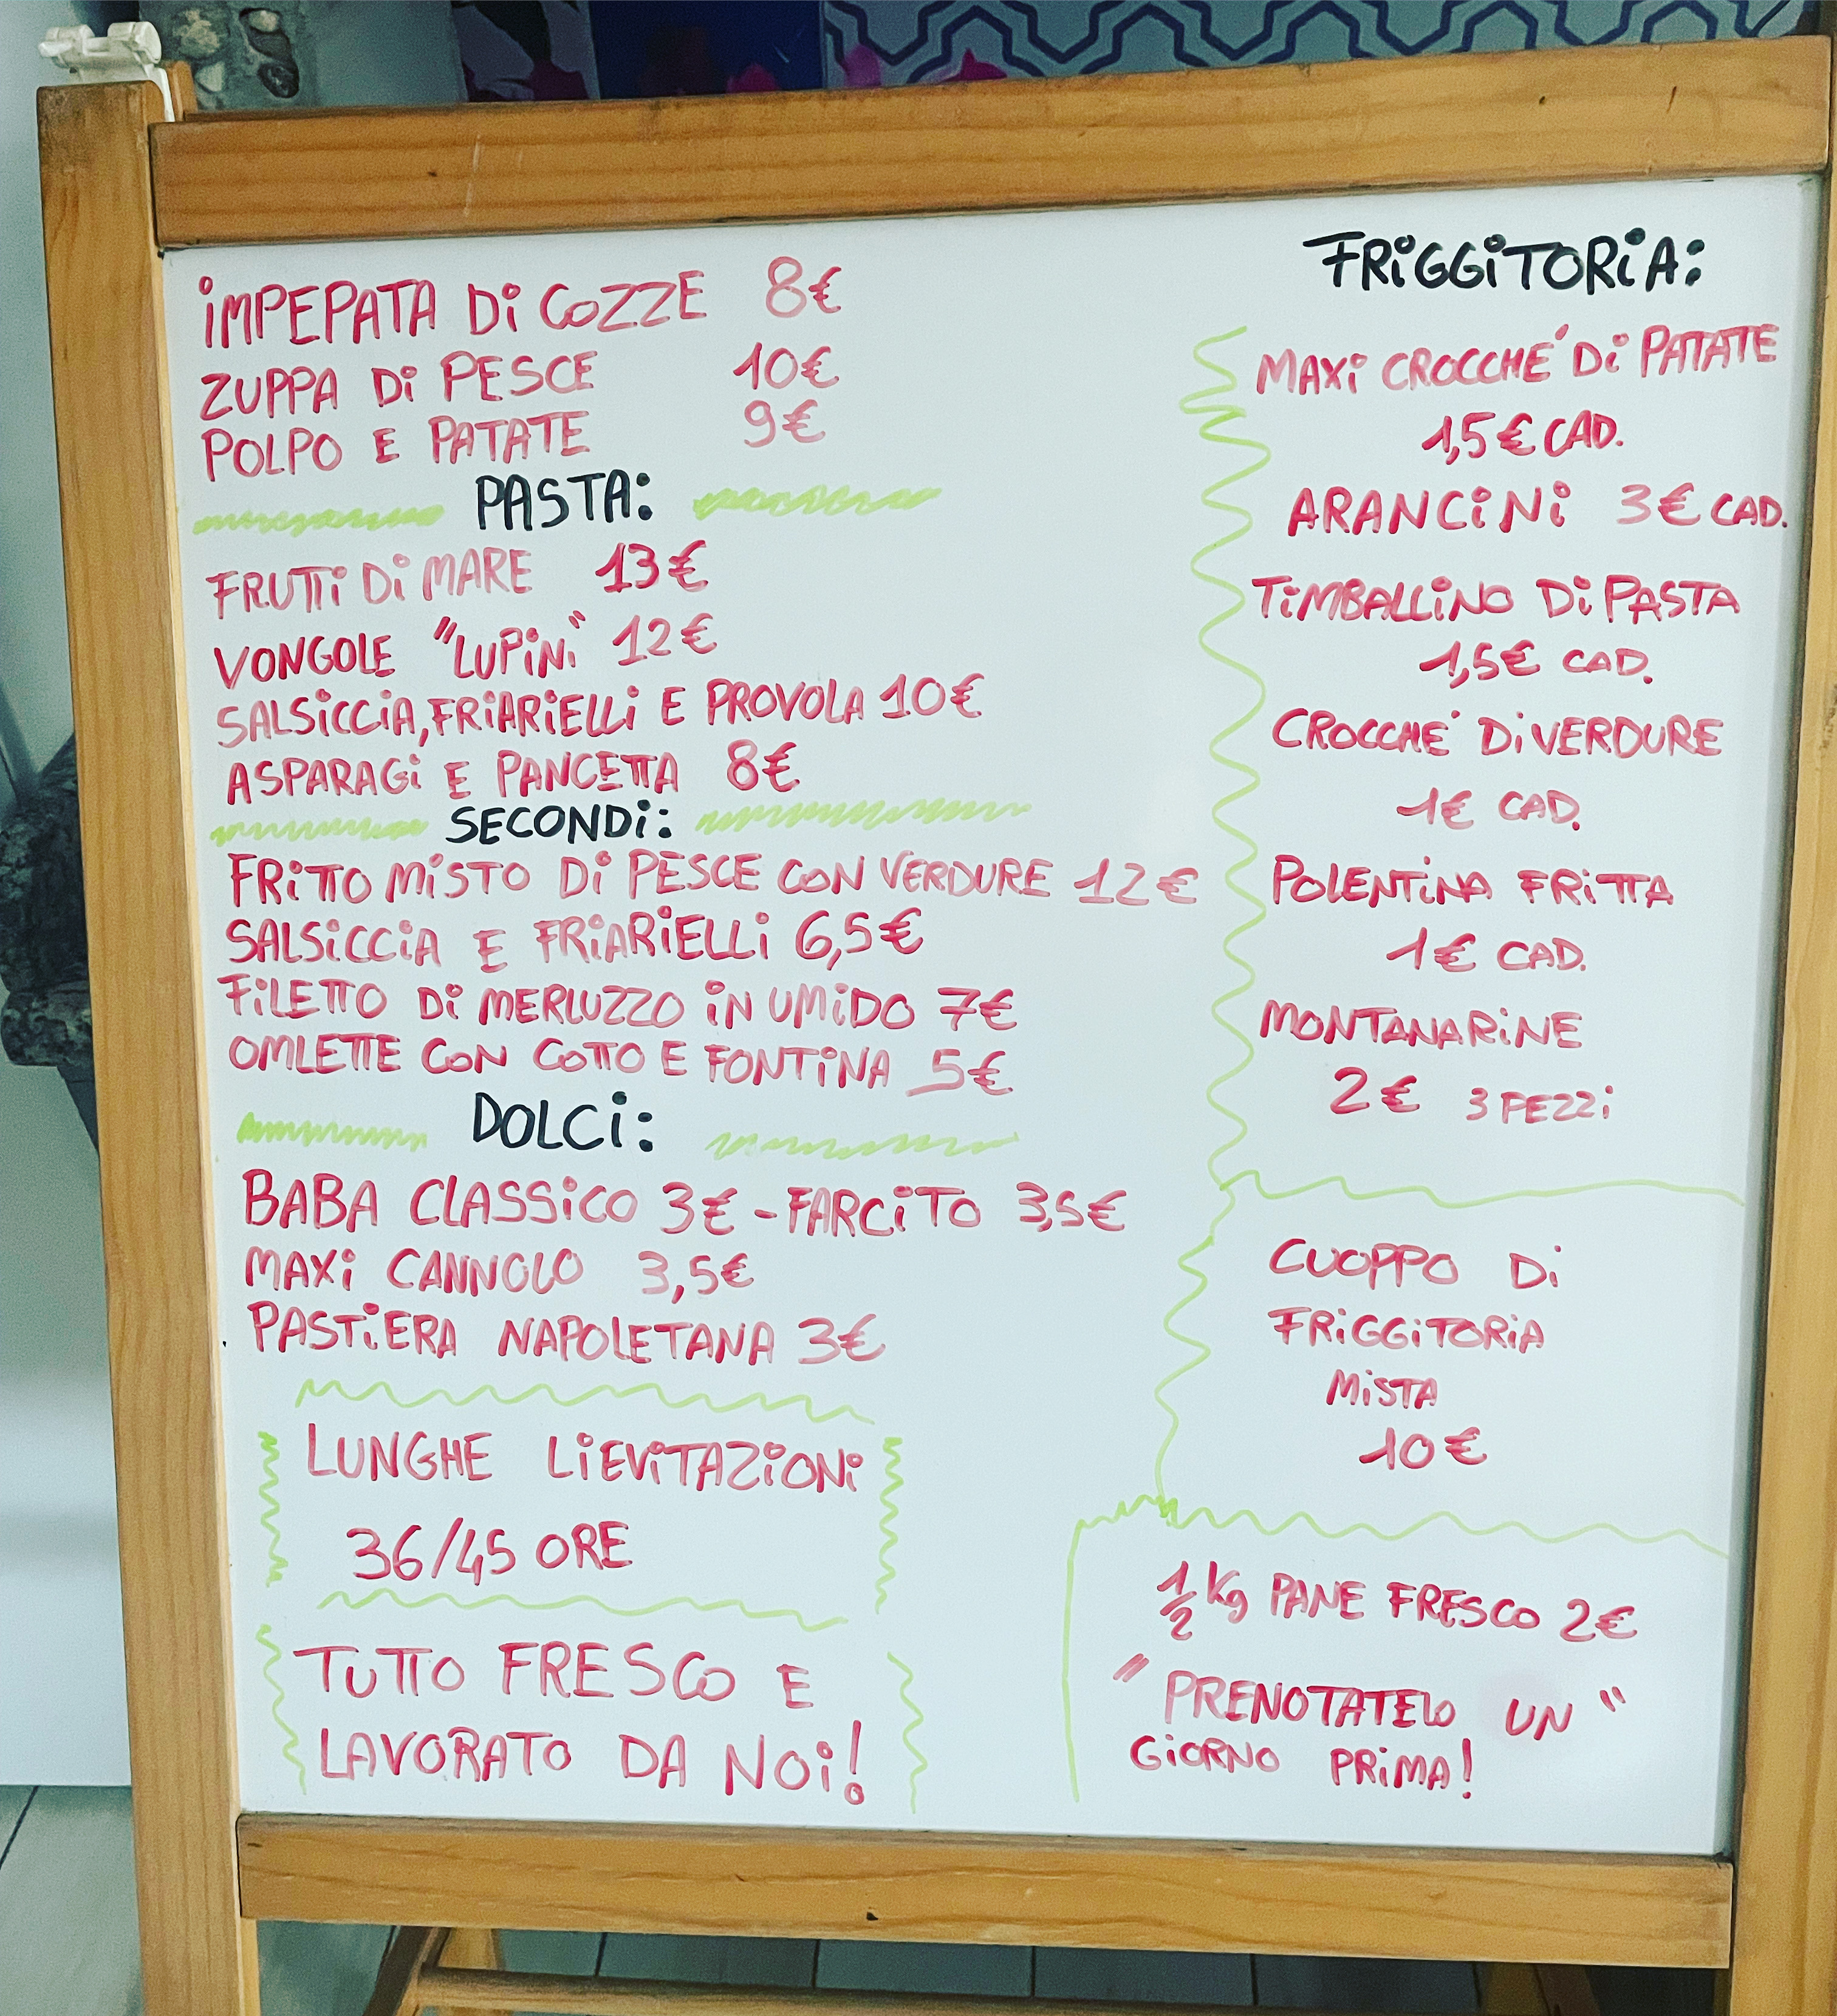 IMPEPATA Di COZZE 8€
ZUPPA Di PESCE 10€
POLPO E PATATE 9€
PASTA:
FRUTTi Di MARE 13€
VONGOLE "LUPiNi" 12€
SALSiCCiA, FRiARiELLi E PROVOLA 10€
ASPARAGi E PANCETTA 8€
SECONDi:
FRiTTO MiSTO Di PESCE CON VERDURE 12€
SALSiCCiA E FRiARiELLi 6,5€
FiLETTO Di MERLUZZO iN UMiDO 7€
OMLETTE CON COTTO E FONTiNA 5€
DOLCi:
BABA CLASSiCO 3€ - FARCiTO 3,5€
MAXi CANNOLO 3,5€
PASTiERA NAPOLETANA 3€
LUNGHE LiEViTAZiONi
36/45 ORE
TUTTO FRESCO E
LAVORATO DA NOi!
FRiGGiTORiA:
MAXi CROCCHE' Di PATATE
1,5€ CAD.
ARANCiNi 3€ CAD.
TiMBALLiNO Di PASTA
1,5€ CAD.
CROCCHE' Di VERDURE
1€ CAD.
POLENTiNA FRiTTA
1€ CAD.
MONTANARiNE
2€ 3 PEZZi
CUOPPO Di
FRiGGiTORiA
MiSTA
10€
1/2 Kg PANE FRESCO 2€
"PRENOTATELO UN"
GiORNO PRiMA!